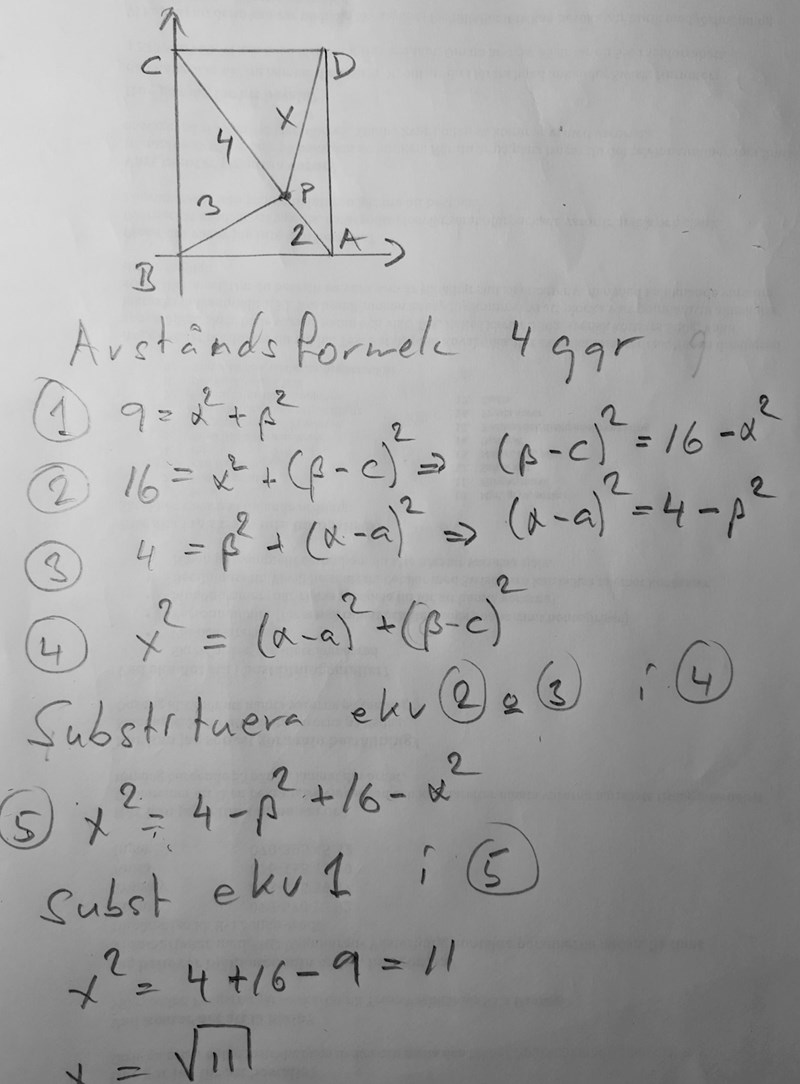 C D
4 x
3 P
2 A
B
Avståndsformel 4 ggr
① 9 = α² + β²
② 16 = α² + (β - c)² ⇒ (β - c)² = 16 - α²
③ 4 = β² + (α - a)² ⇒ (α - a)² = 4 - β²
④ x² = (α - a)² + (β - c)²
Substituera ekv ② o ③ i ④
⑤ x² = 4 - β² + 16 - α²
Subst ekv 1 i ⑤
x² = 4 + 16 - 9 = 11
x = √11